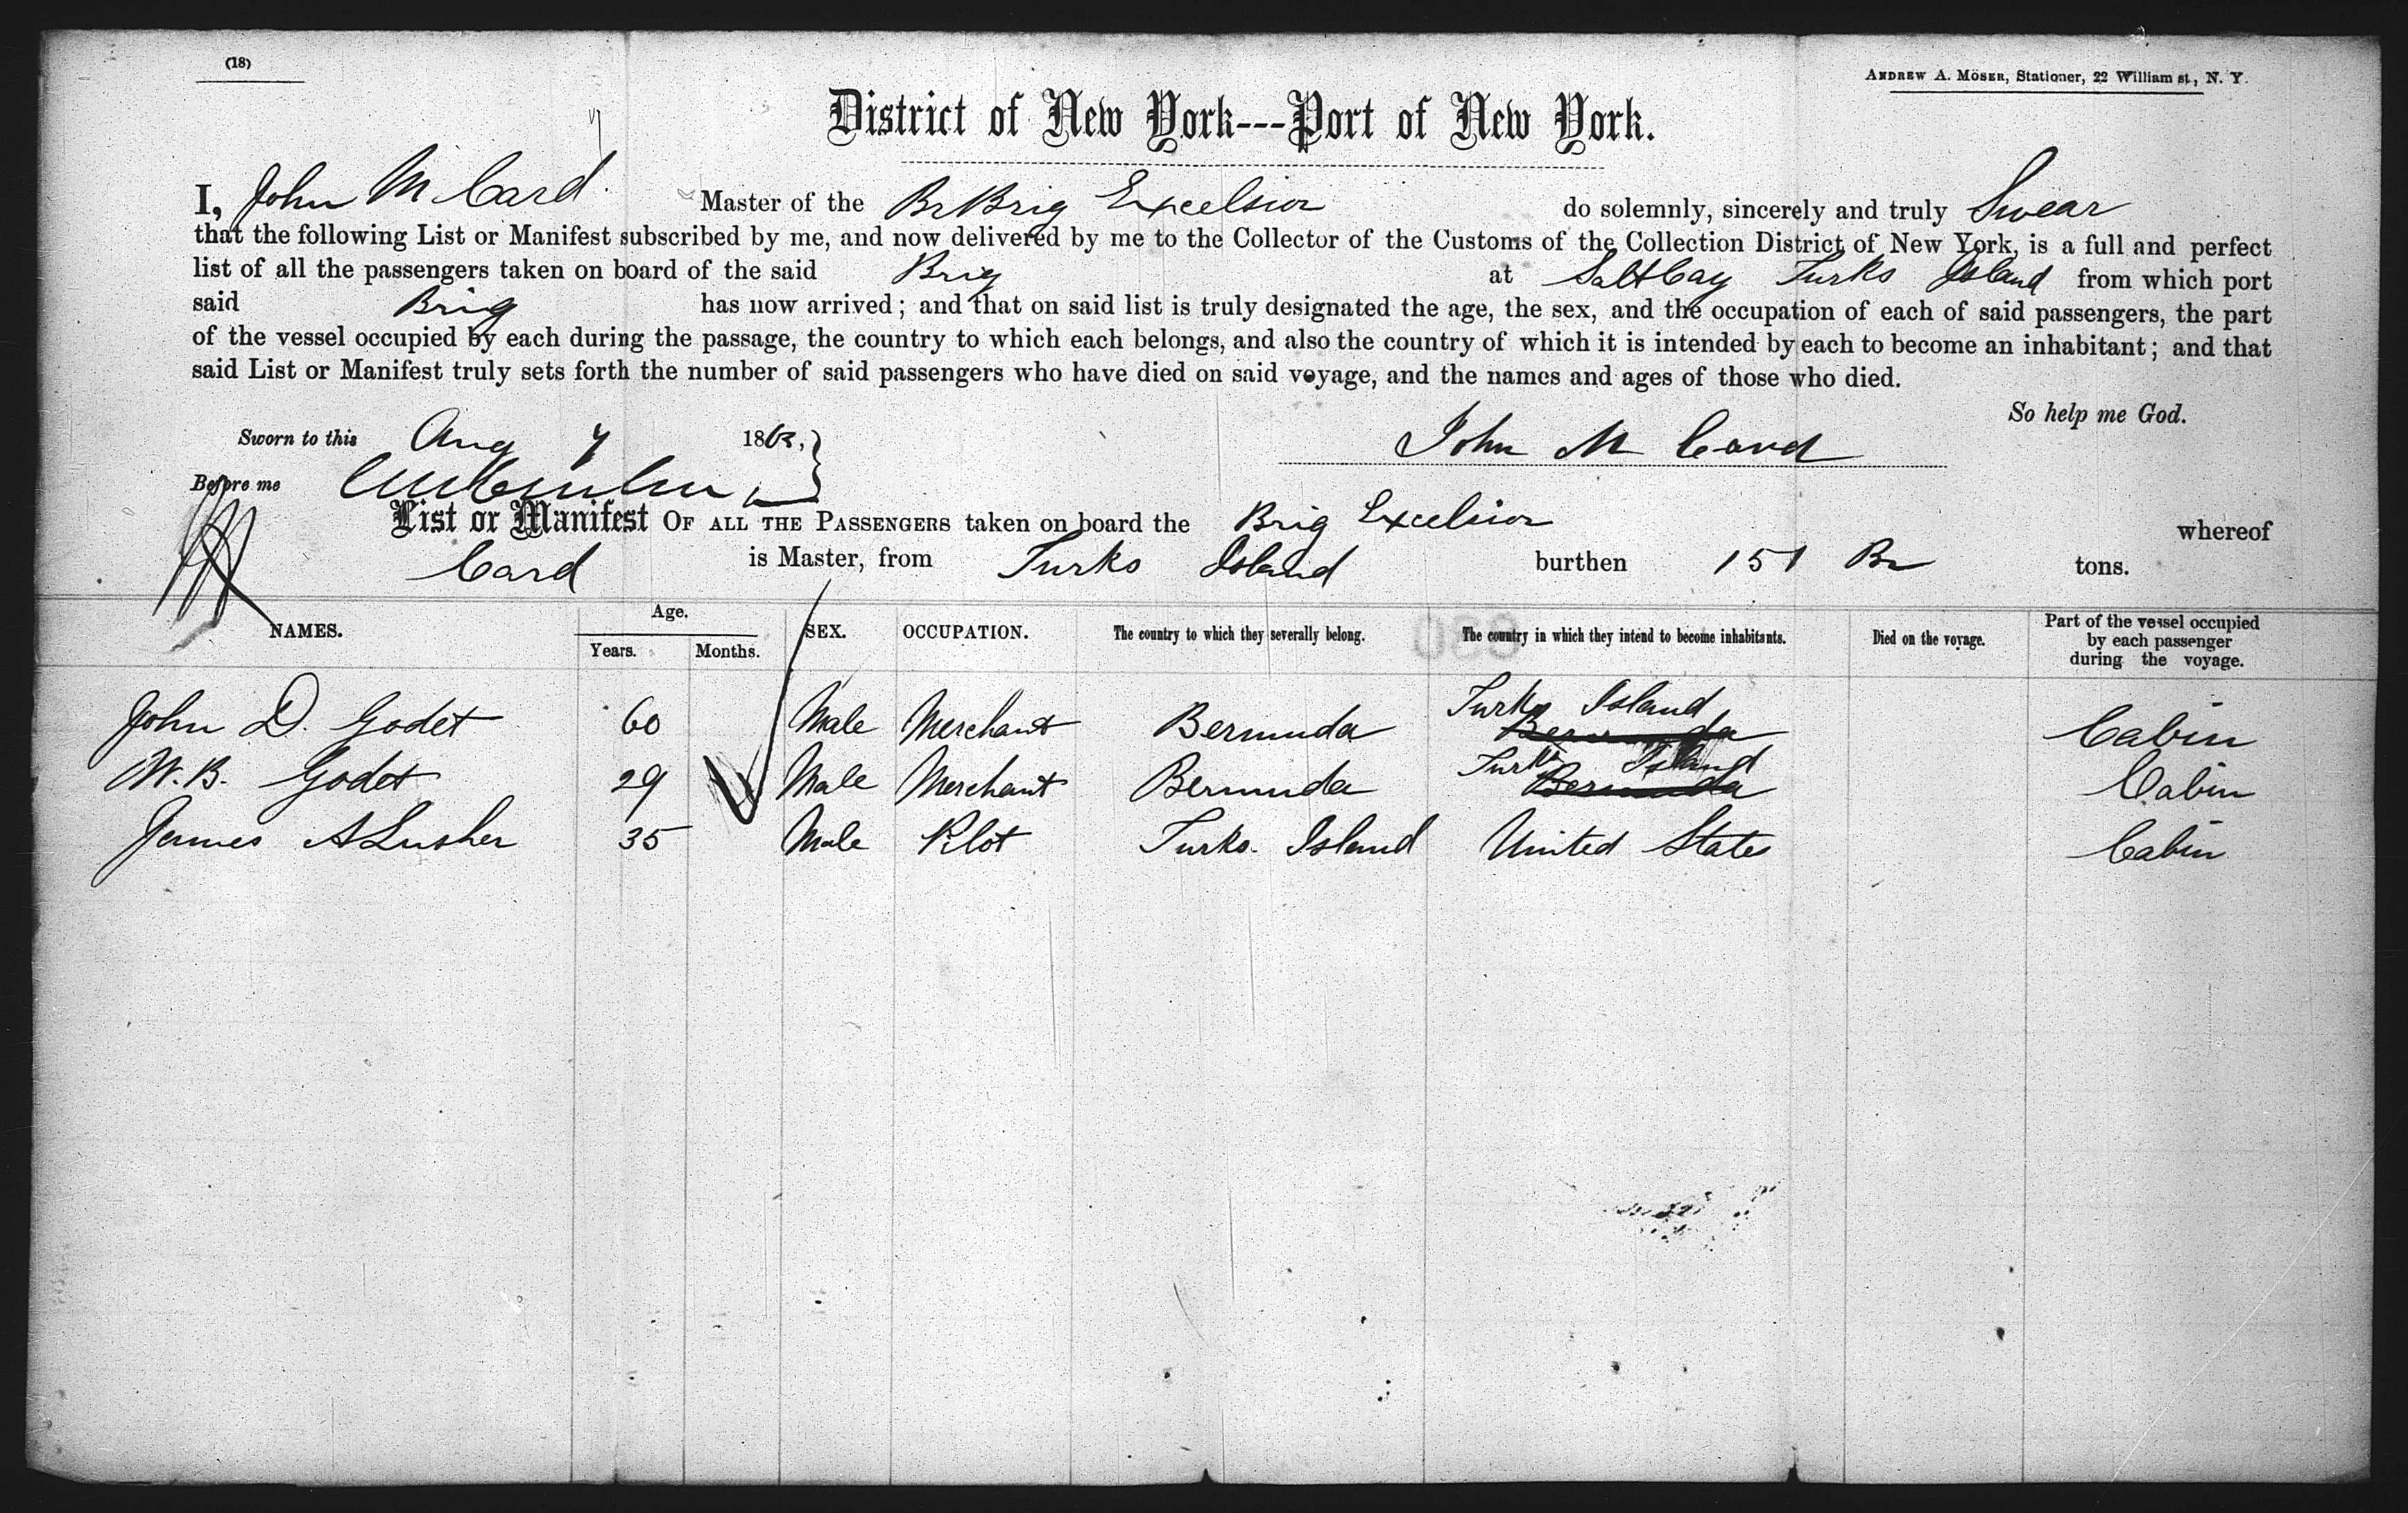 (18)
ANDREW A. MÖSER, Stationer, 22 William st., N. Y.
District of New York---Port of New York.
I, John M Card Master of the Br Brig Excelsior do solemnly, sincerely and truly Swear
that the following List or Manifest subscribed by me, and now delivered by me to the Collector of the Customs of the Collection District of New York, is a full and perfect
list of all the passengers taken on board of the said Brig at Salt Cay Turks Island from which port
said Brig has now arrived; and that on said list is truly designated the age, the sex, and the occupation of each of said passengers, the part
of the vessel occupied by each during the passage, the country to which each belongs, and also the country of which it is intended by each to become an inhabitant; and that
said List or Manifest truly sets forth the number of said passengers who have died on said voyage, and the names and ages of those who died.
So help me God.
Sworn to this Aug 7 186
John M Card
Before me
List or Manifest OF ALL THE PASSENGERS taken on board the Brig Excelsior whereof
Card is Master, from Turks Island burthen 151 Br tons.
NAMES. Age. Years. Months. SEX. OCCUPATION. The country to which they severally belong. The country in which they intend to become inhabitants. Died on the voyage. Part of the vessel occupied by each passenger during the voyage.
John D. Godet 60 Male Merchant Bermuda Turks Island Bermuda Cabin
W. B. Godet 29 Male Merchant Bermuda Turks Island Bermuda Cabin
James A Lusher 35 Male Pilot Turks Island United States Cabin